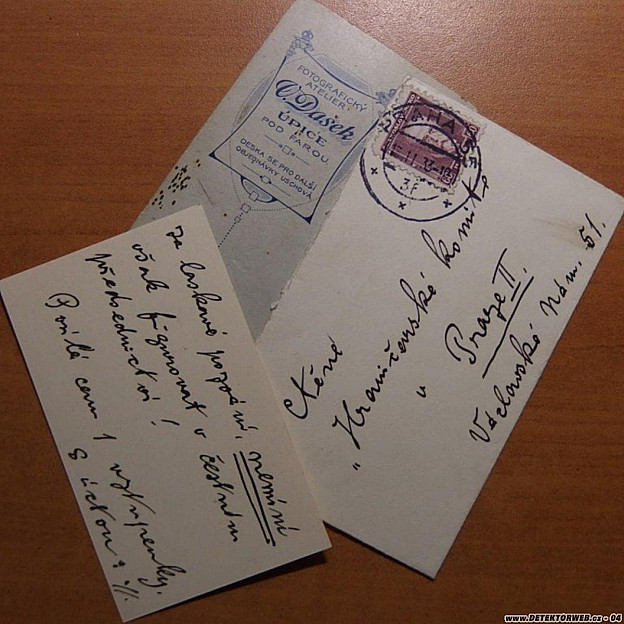 FOTOGRAFICKÝ
ATELIER
V. Dašek
ÚPICE
POD FAROU
DESKA SE PRO DALŠÍ
OBJEDNÁVKY USCHOVÁ
PRAHA
Ctěné
„Hraničenské komité
v Praze II.
Václavské Nám. 51.
Za laskavé pozvání, nemíní
však figurovat v čestném
předsednictví!
Posílá cenu 1 vstupenky.
S úctou
www.DETEKTORWEB.cz - 04